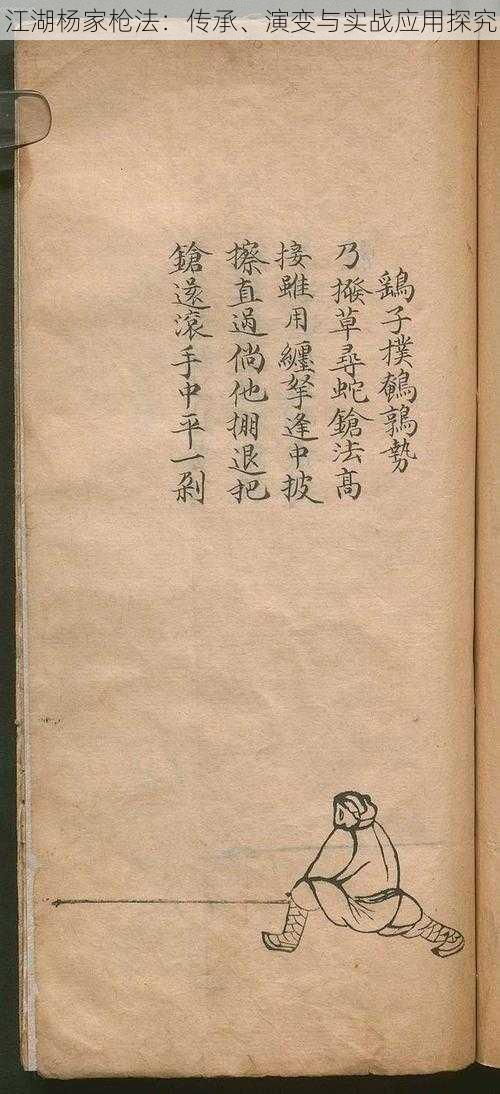 江湖杨家枪法：传承、演变与实战应用探究
鷂子撲鵪鶉勢
乃撥草尋蛇鎗法高
接雖用纏拏逢中披
擦直過倘他掤退把
鎗還滾手中平一剁